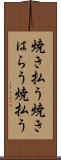 焼き払う焼き
はらう焼払う